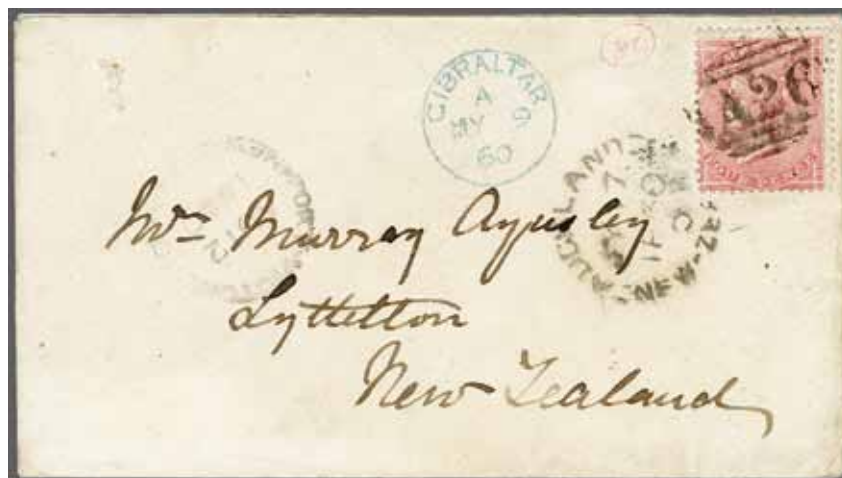 GIBRALTAR
A
MY 9
60
A26
AUCKLAND
NEW-ZEA
Mrs Murray Aynsley
Lyttelton
New Zealand